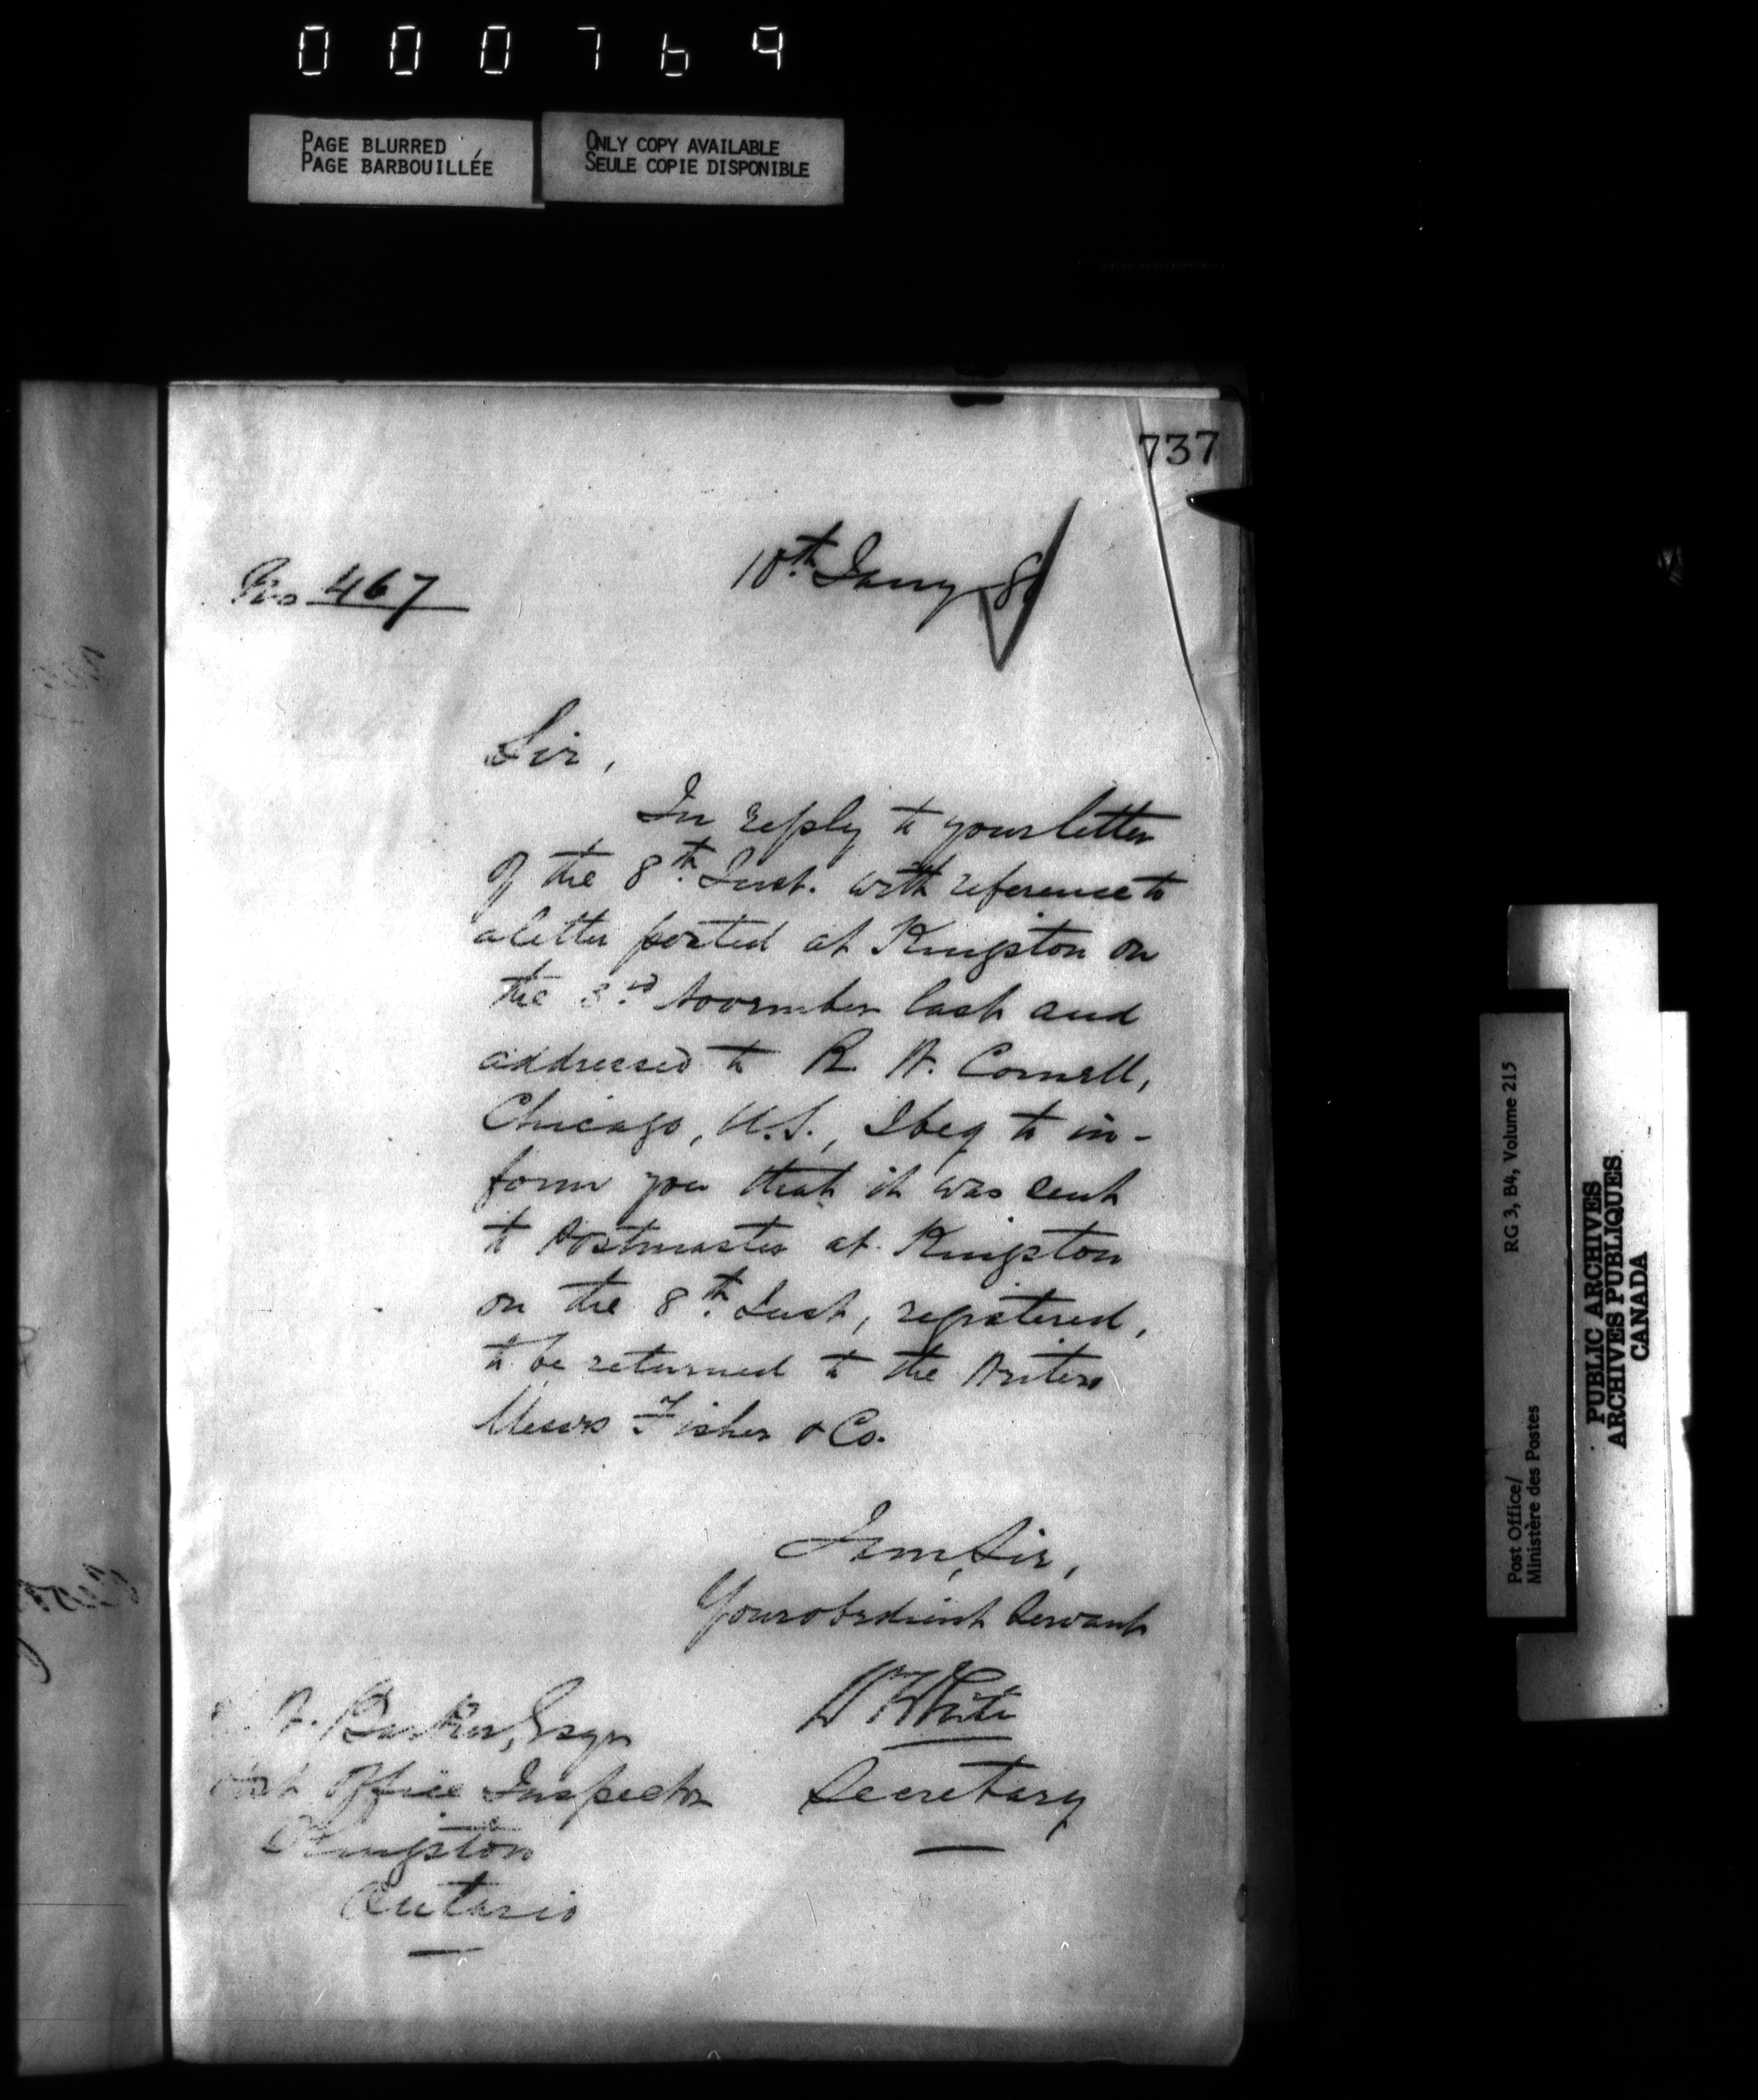 000769
PAGE BLURRED
PAGE BARBOUILLÉE
ONLY COPY AVAILABLE
SEULE COPIE DISPONIBLE
737
No 467
10th Jany
Sir,
In reply to your letter
of the 8th Inst. with reference to
a letter posted at Kingston on
the 3rd November last and
addressed to R. W. Cornell,
Chicago, U.S., I beg to in-
form you that it was sent
to Postmaster at Kingston
on the 8th Inst, registered,
to be returned to the Writers
Messrs Fisher & Co.
I am, Sir,
Your obedient Servant
W White
Secretary
W. Barker, Esqr
Post Office Inspector
Kingston
Ontario
Post Office/
Ministère des Postes
RG 3, B4, Volume 215
PUBLIC ARCHIVES
ARCHIVES PUBLIQUES
CANADA